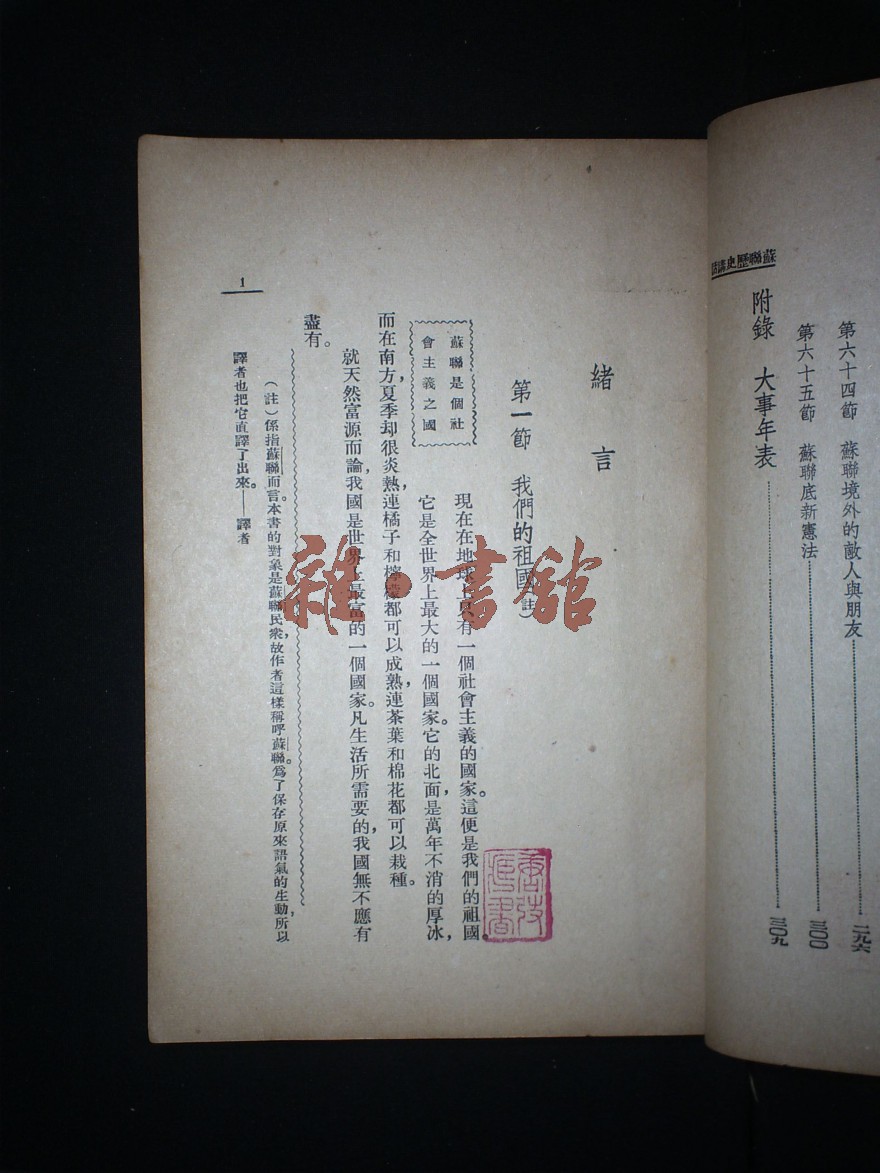 蘇聯歷史講話
第六十四節　蘇聯境外的敵人與朋友……二九六
第六十五節　蘇聯底新憲法……三〇〇
附錄　大事年表……三〇九
緒言
第一節　我們的祖國(註)
蘇聯是個社
會主義之國
現在在地球上只有一個社會主義的國家。這便是我們的祖國。
它是全世界上最大的一個國家。它的北面，是萬年不消的厚冰，
而在南方，夏季却很炎熱，連橘子和檸檬都可以成熟，連茶葉和棉花都可以栽種。
就天然富源而論，我國是世界上最富的一個國家。凡生活所需要的，我國無不應有
盡有。
(註)係指蘇聯而言。本書的對象是蘇聯民衆，故作者這樣稱呼蘇聯。爲了保存原來語氣的生動，所以
譯者也把它直譯了出來。——譯者
1
雜·書館